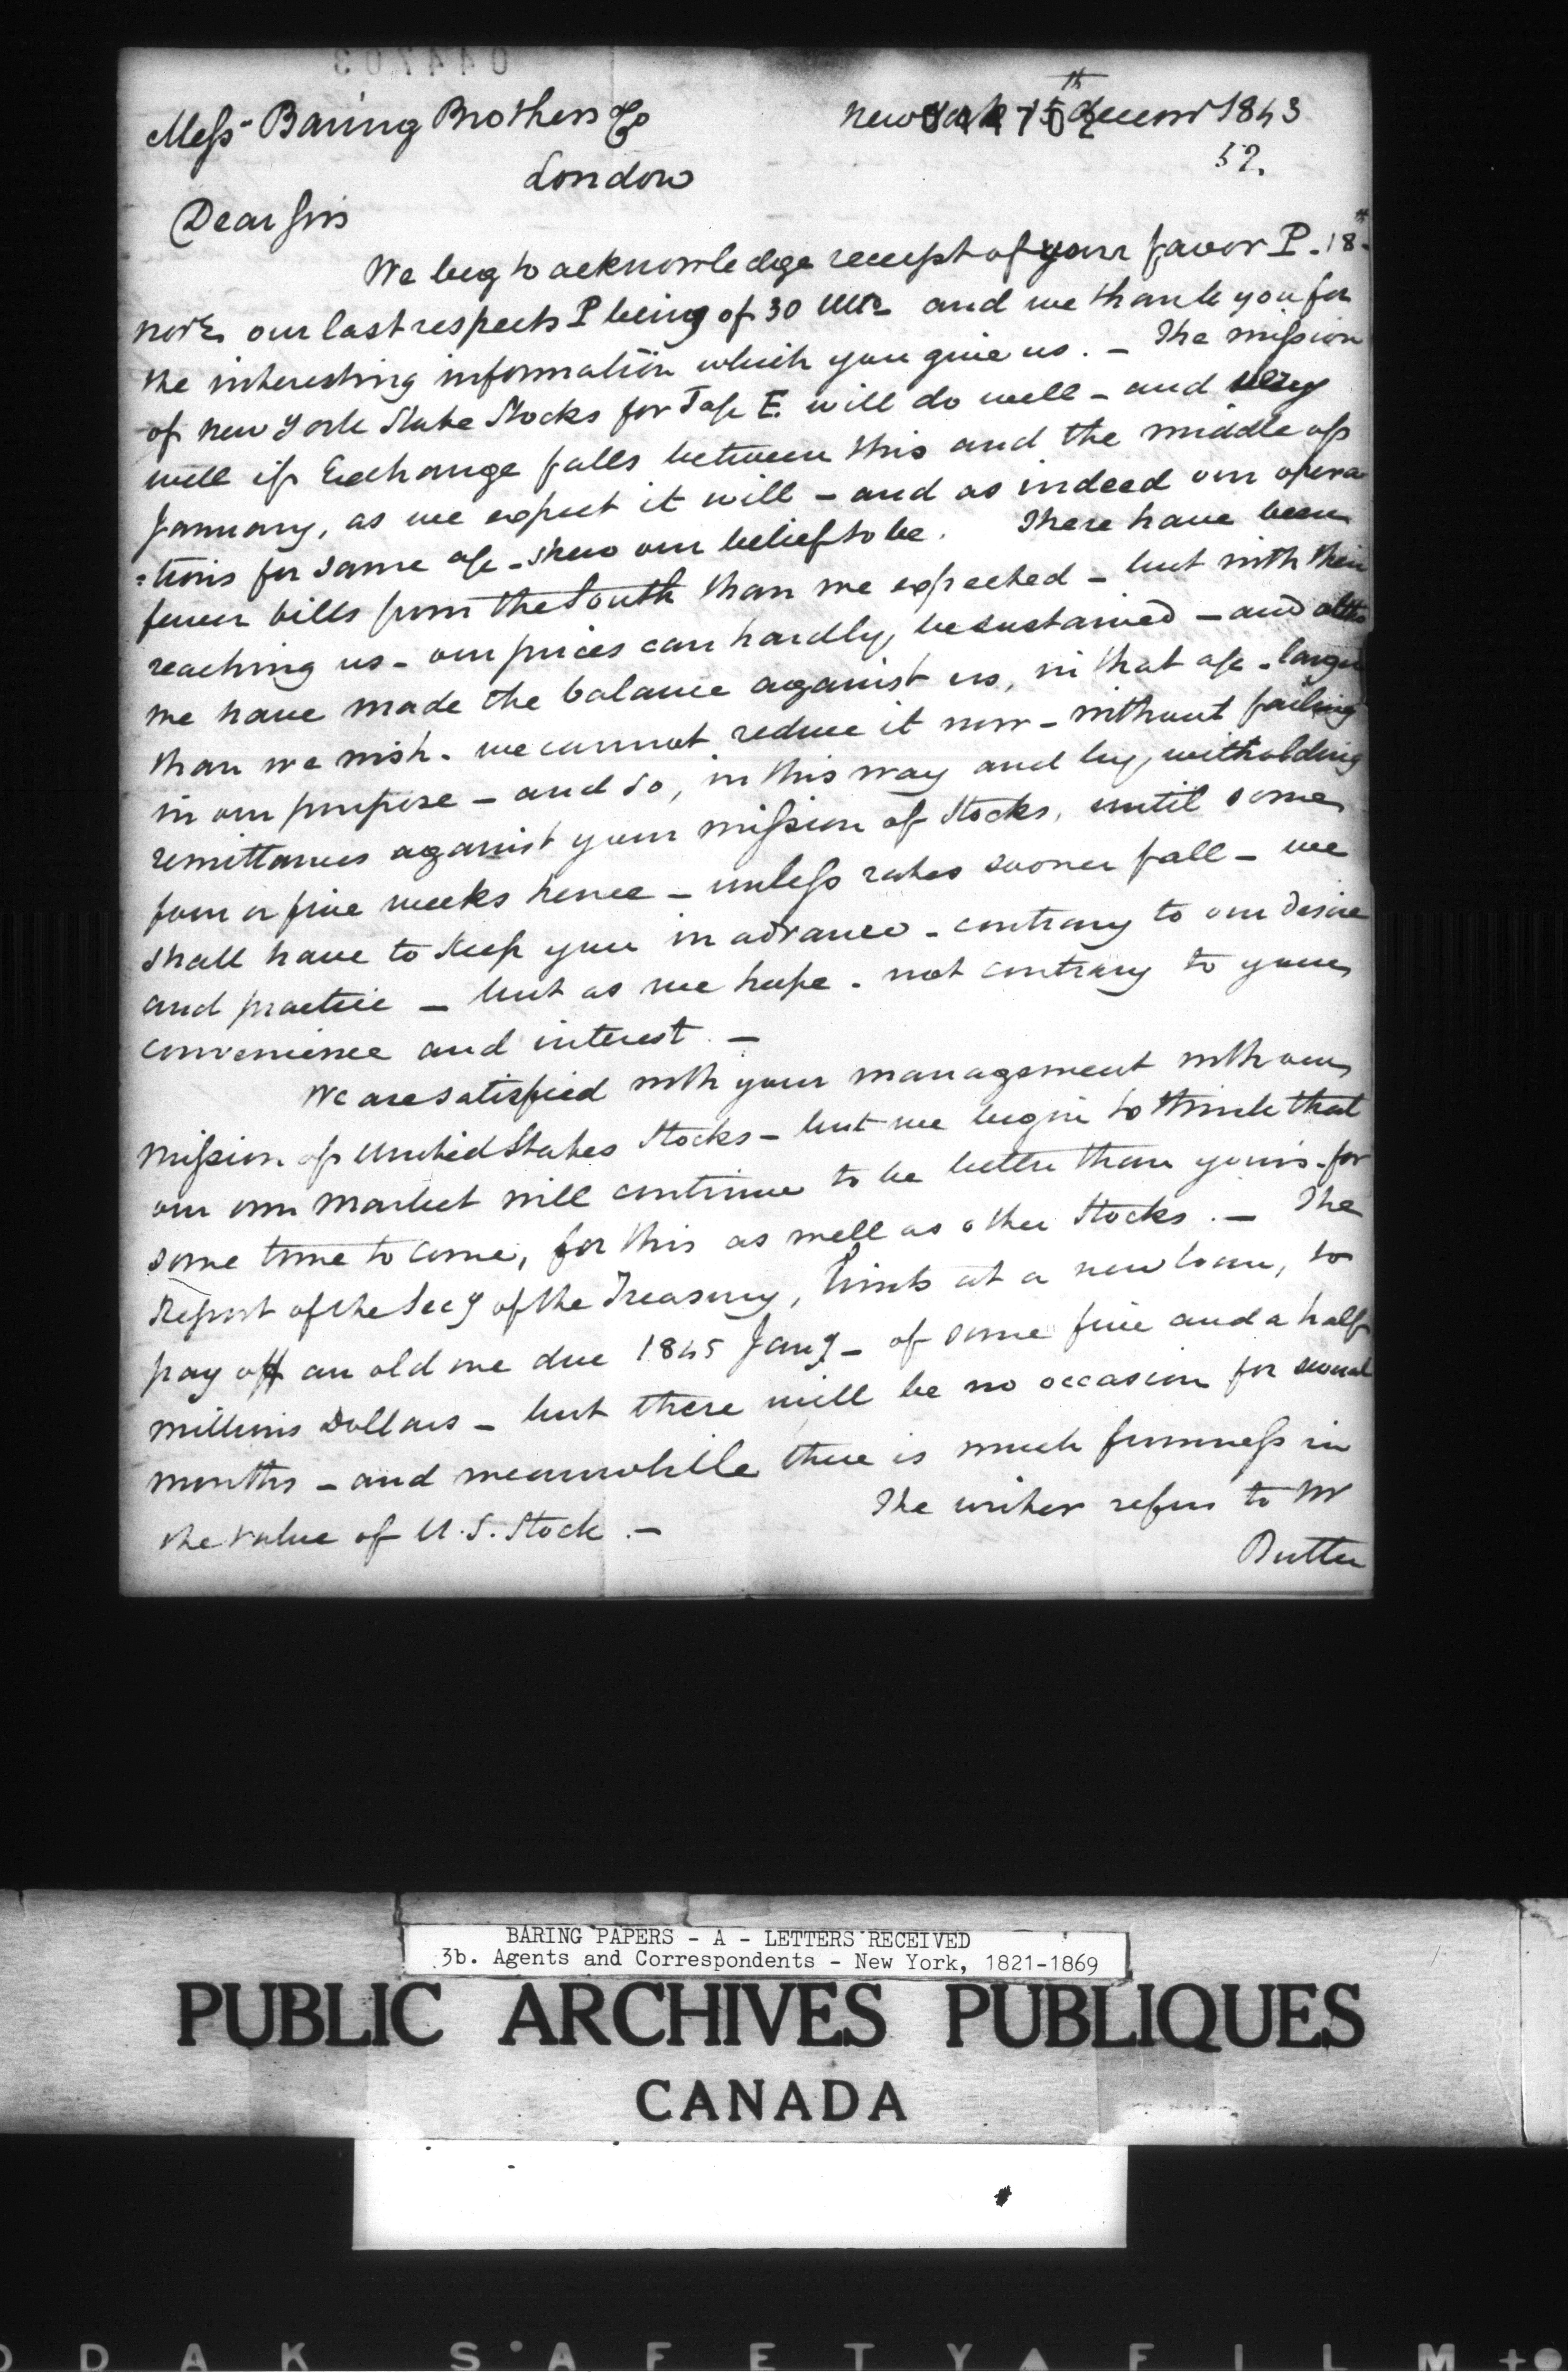 044703
Mess- Baring Brothers & Co
New York 15th Decemr 1843
044702
52.
London
Dear Sirs
We beg to acknowledge receipt of your favor P. 18th
novr. our last respects P being of 30 Ulto and we thank you for
the interesting information which you give us. - The mission
of New York State Stocks for J a/c E. will do well - and very
well if Exchange falls between this and the middle of
January, as we expect it will - and as indeed our opera
=tions for same a/c - shew our belief to be. There have been
fewer bills from the South than we expected - but with their
reaching us - our prices can hardly, be sustained - and altho
we have made the balance against us, in that a/c - larger
than we wish - we cannot reduce it now - without failing
in our purpose - and so, in this way and by, witholding
remittances against your mission of Stocks, until some
four or five weeks hence - unless rates sooner fall - we
shall have to keep you in advance - contrary to our desire
and practice - but as we hope - not contrary to your
convenience and interest. -
We are satisfied with your management with our
mission of United States Stocks - but we begin to think that
our own market will continue to be better than yours - for
some time to come, for this as well as other Stocks. - The
Report of the Secy of the Treasury, hints at a new loan, to
pay off an old one due 1845 Jany - of some five and a half
millions Dollars - but there will be no occasion for several
months - and meanwhile there is much firmness in
the value of U.S. Stock. - The writer refers to Mr
Butler
BARING PAPERS - A - LETTERS RECEIVED
3b. Agents and Correspondents - New York, 1821-1869
PUBLIC ARCHIVES PUBLIQUES
CANADA
ODAK SAFETY FILM